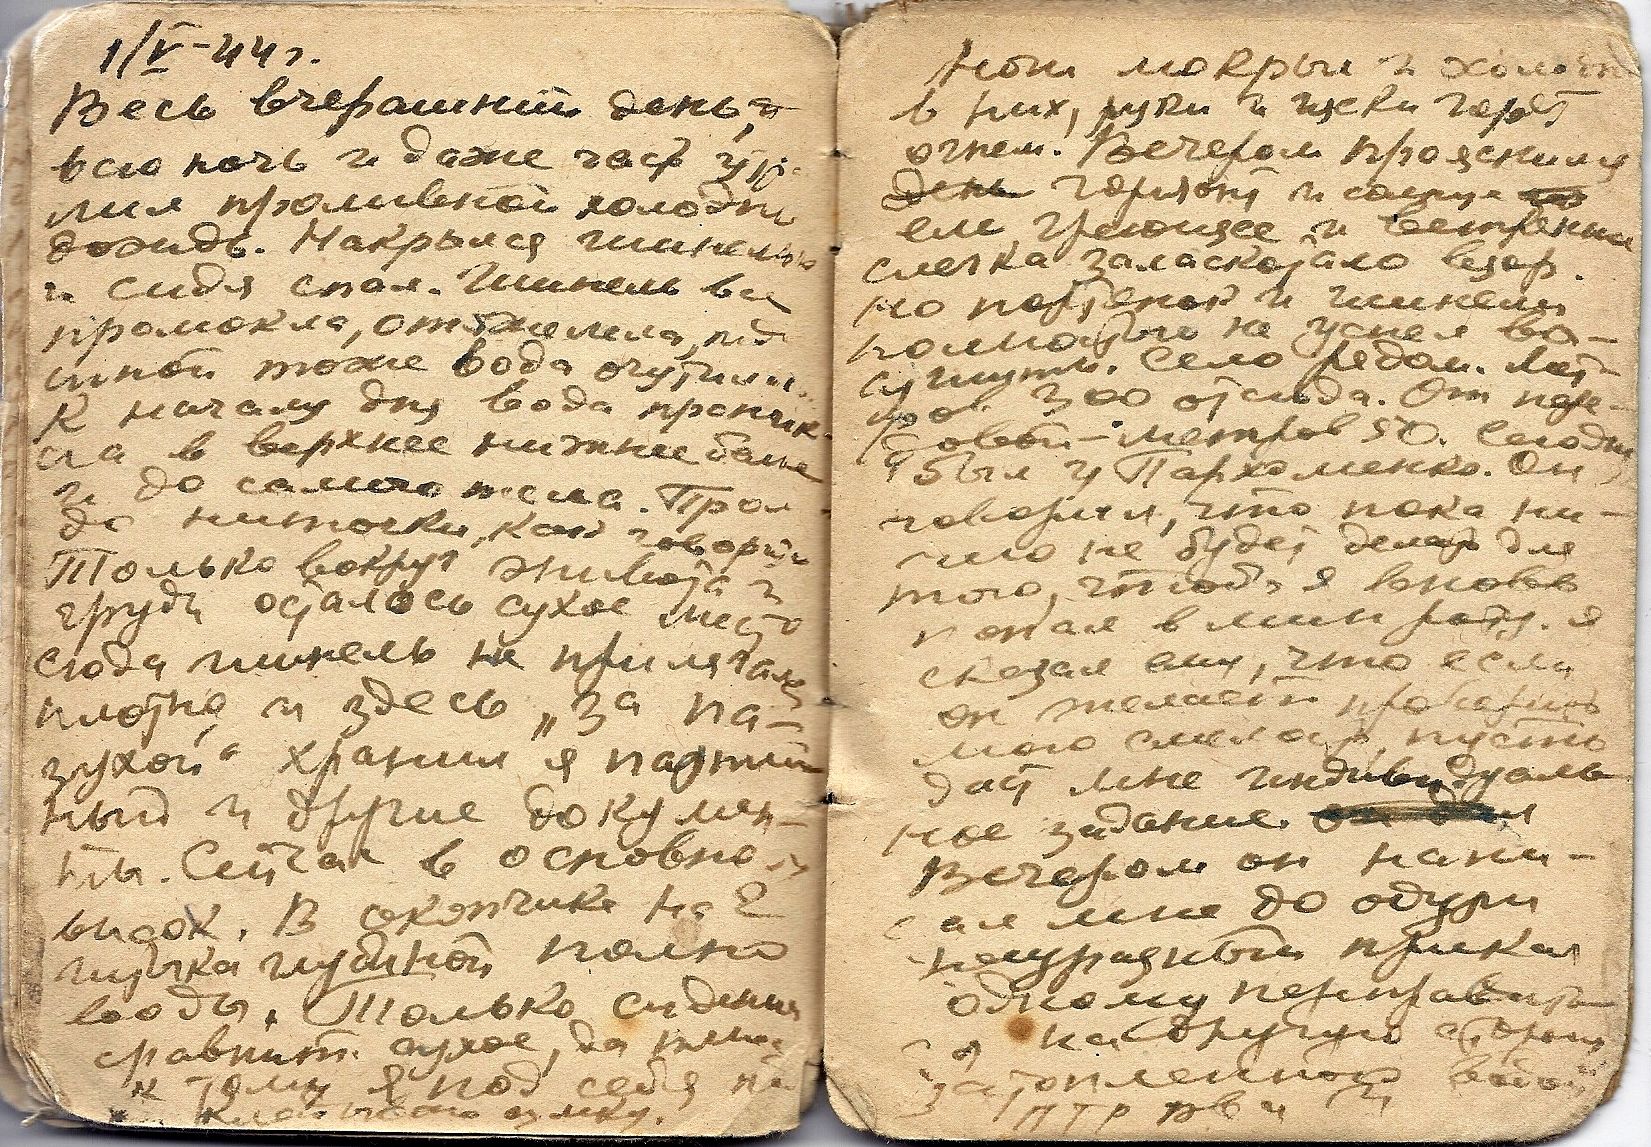 1/V-44г.
Весь вчерашний день, и
всю ночь и даже час утра
лил проливной холодный
дождь. Накрылся шинелью
и сидя спал. Шинель вся
промокла, отяжелела, под
спиной тоже вода очутилась.
К началу дня вода проник-
ла в верхнее нижнее белье
и до самого тела. Пром
до ниточки, как говорят.
Только вокруг живота и
груди осталось сухое место
сюда шинель не прилегала
плотно и здесь „за па-
зухой“ хранил я партий-
ный и другие докумен-
ты. Сейчас в основном
высох. В окопчике на 2
штыка глубиной полно
воды. Только сиденье
сравнит. сухое, да плюс
к тому я под себя под
кладываю сумку.
Ноги мокры и холодно
в них, руки и щеки горят
огнем. Вечером прояснился
день горизонт и солнце
еле греющее и ветренни
слегка заласкотало взор.
но портянок и шинели
полностью не успел вы-
сушить. Село рядом. Мет-
ров 300 отсюда. От пере-
довой - метров 50. Сегодня
я был у Пархоменко. Он
говорил, что пока ни-
чего не будет делать для
того, чтобы я вновь
попал в мин роту. Я
сказал ему, что если
он желает проверить
мою смелость, пусть
даст мне индивидуаль-
ное задание. он был
Вечером он напи-
сал мне до одури
несуразный приказ
одному переправить-
ся на другую сторону
затопленного водой